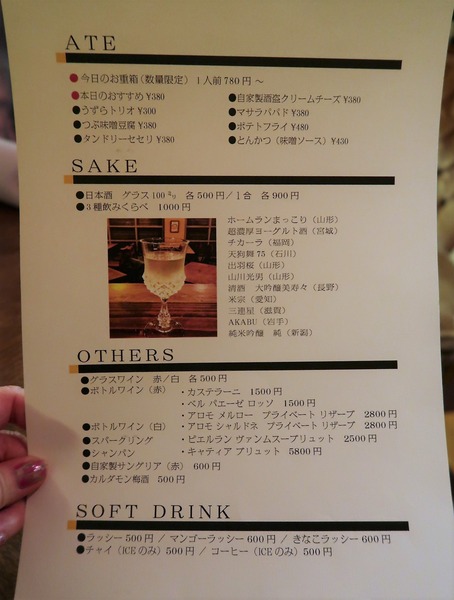 ATE
●今日のお重箱(数量限定) 1人前780円 ～
●本日のおすすめ ¥380
●うずらトリオ ¥300
●つぶ味噌豆腐 ¥380
●タンドリーセセリ ¥380
●自家製酒盗クリームチーズ ¥380
●マサラパパド ¥380
●ポテトフライ ¥480
●とんかつ(味噌ソース) ¥430
SAKE
●日本酒 グラス100㏄ 各500円/1合 各900円
●3種飲みくらべ 1000円
ホームランまっこり(山形)
超濃厚ヨーグルト酒(宮城)
チカーラ(福岡)
天狗舞75(石川)
出羽桜(山形)
山川光男(山形)
清酒 大吟醸美寿々(長野)
米宗(愛知)
三連星(滋賀)
AKABU(岩手)
純米吟醸 純(新潟)
OTHERS
●グラスワイン 赤/白 各500円
●ボトルワイン(赤) ・カステラーニ 1500円
・ベル パエーゼ ロッソ 1500円
・アロモ メルロー プライベート リザーブ 2800円
●ボトルワイン(白) ・アロモ シャルドネ プライベート リザーブ 2800円
●スパークリング ・ピエルラン ヴァンムスーブリュット 2500円
●シャンパン ・キャティア ブリュット 5800円
●自家製サングリア(赤) 600円
●カルダモン梅酒 500円
SOFT DRINK
●ラッシー500円 / マンゴーラッシー600円 / きなこラッシー600円
●チャイ(ICEのみ)500円 / コーヒー(ICEのみ)500円